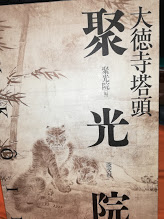 大徳寺塔頭
聚光院
聚光院編